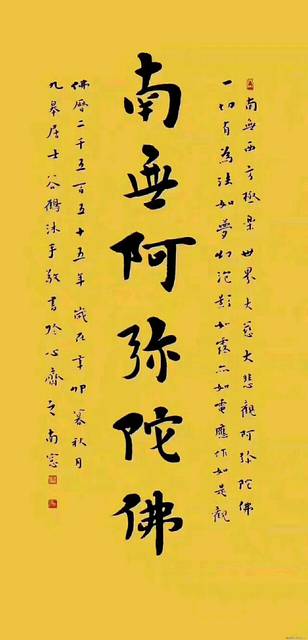 南無西方極樂世界大慈大悲觀阿弥陀佛
一切有為法如夢幻泡影如露亦如電應作如是觀
南無阿弥陀佛
佛曆二千五百五十五年歲在辛卯暮秋月
九皋居士谷鶴沐手敬書於心齋之南窓